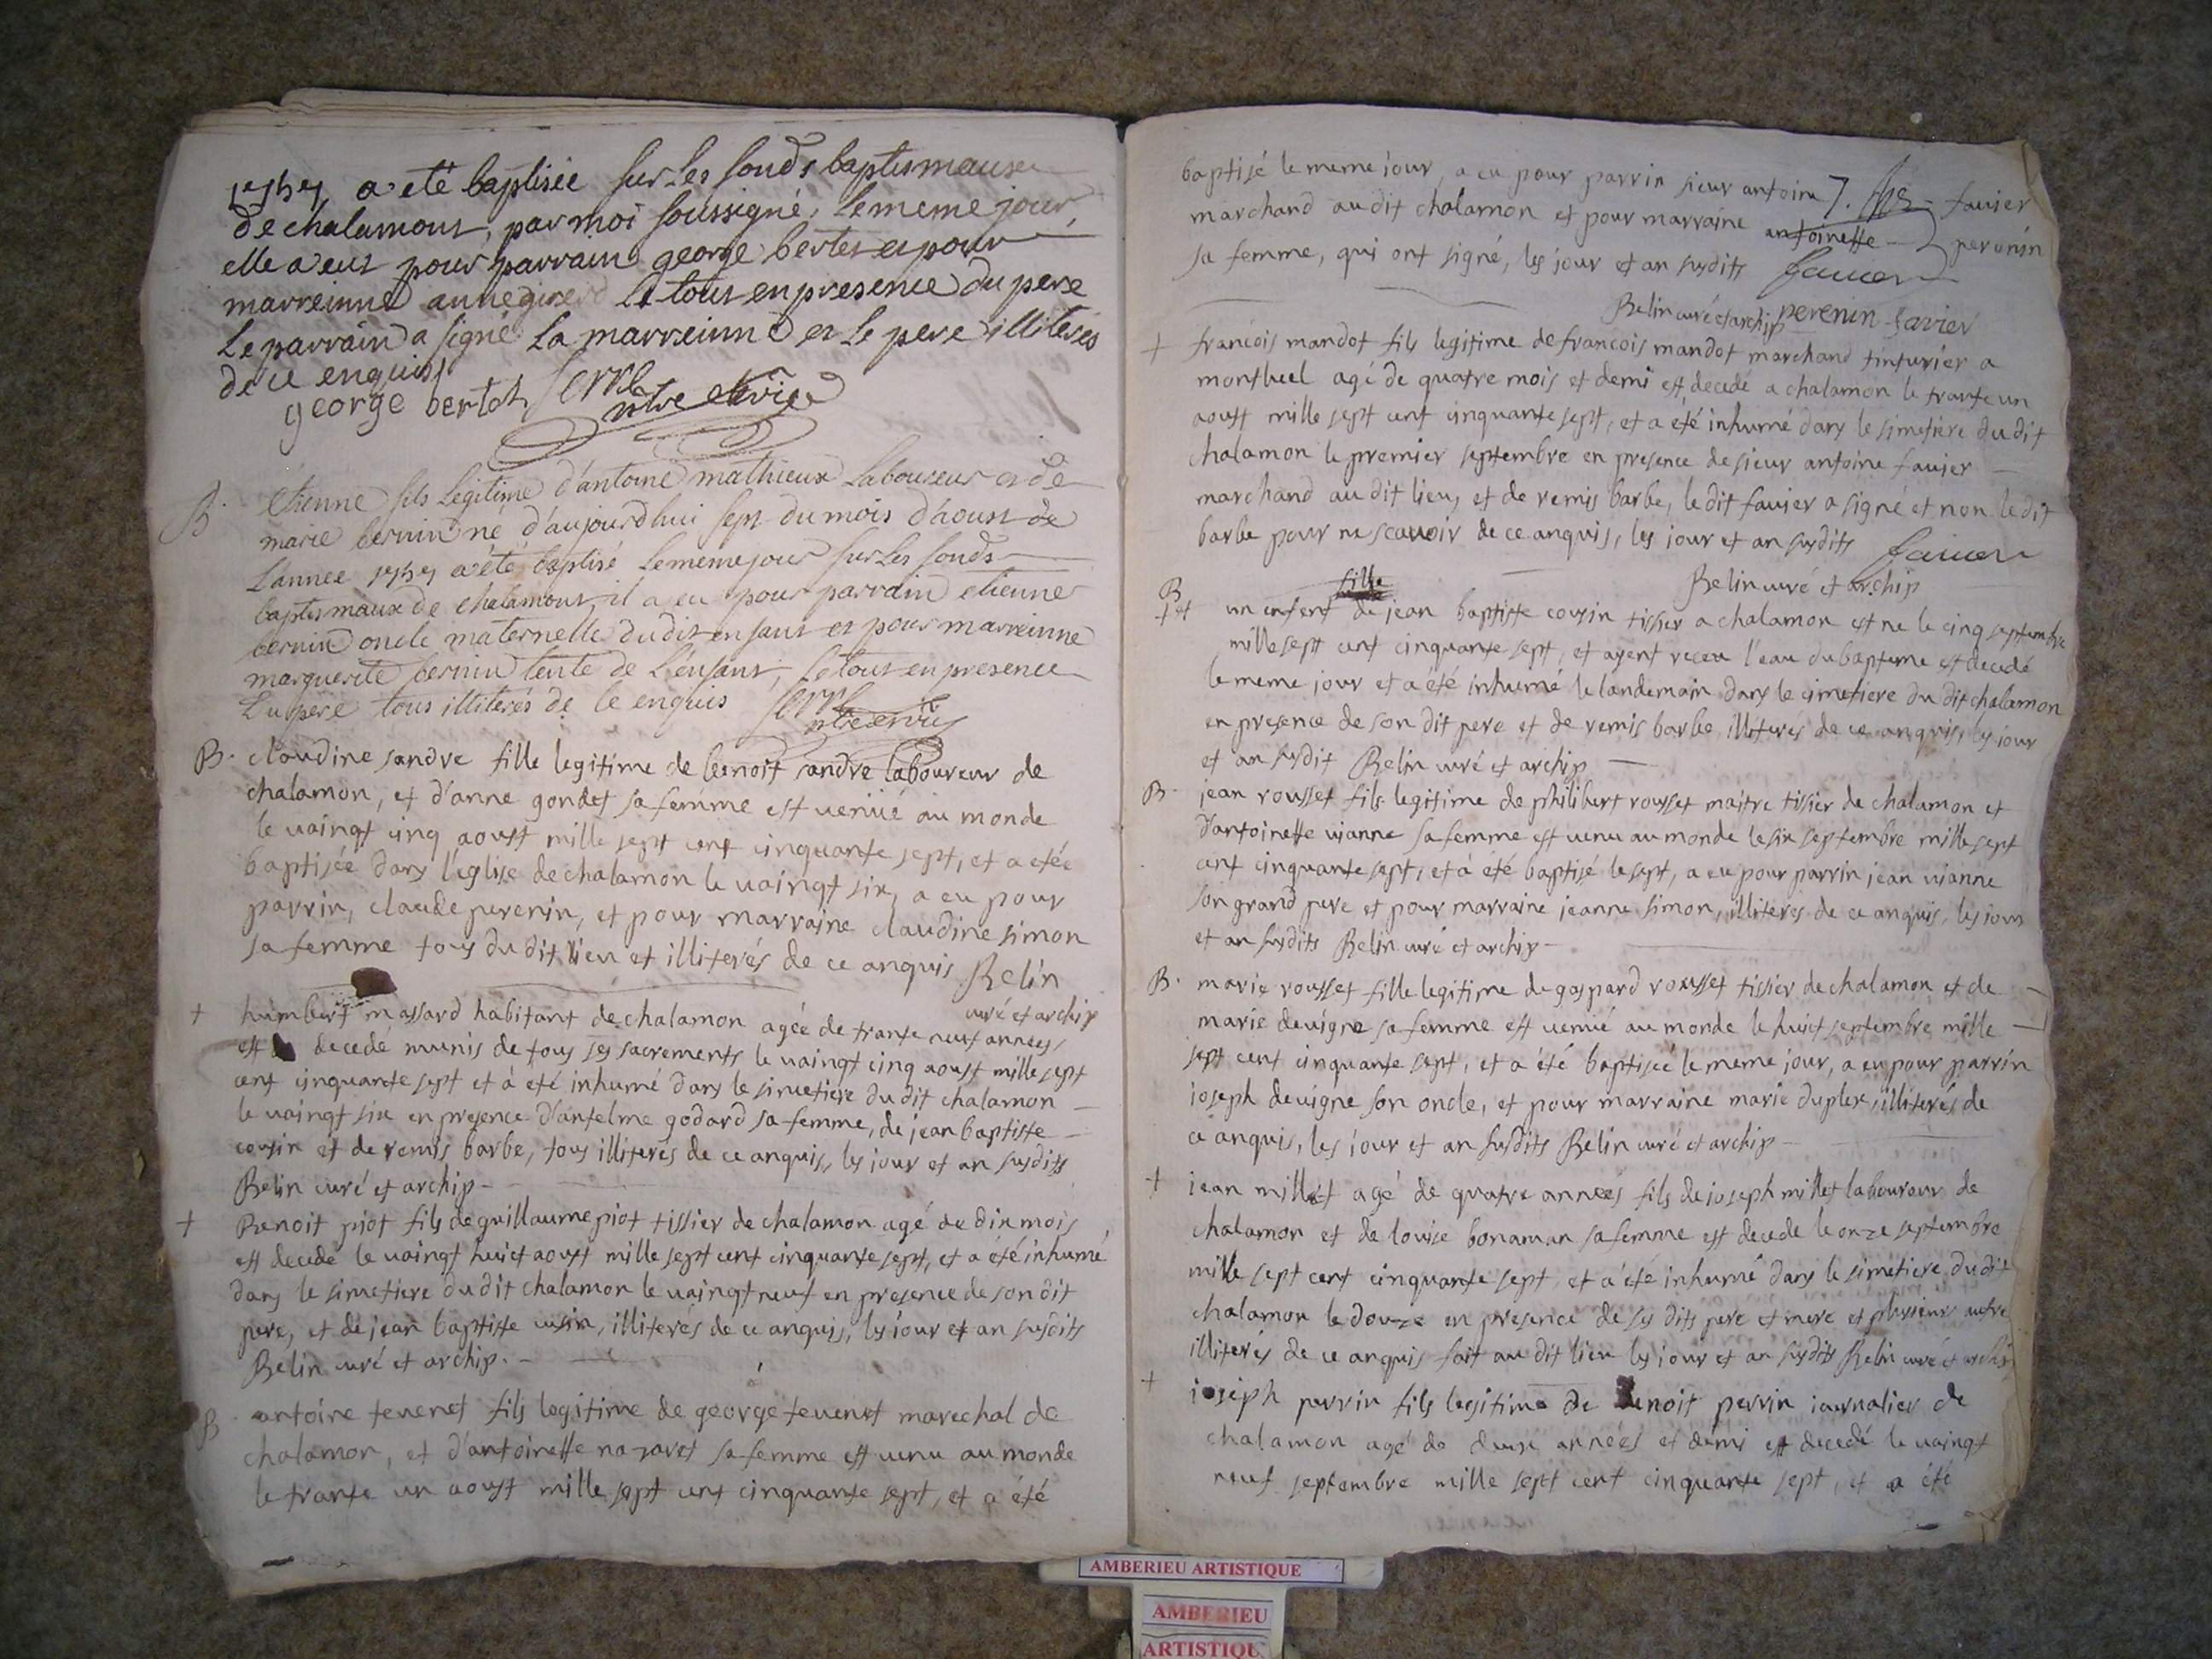 1757 a été baptisée sur les fonds baptismaux
de chalamont, par moi soussigné, le meme jour,
elle a eut pour parrain george bertet et pour
marreinne anne le tout en presence du pere
le parrain a signé la marreinne et le pere illiterés
de ce enquis
george bertet Serre vicaire
B. étienne fils legitime d'antoine mathieux laboureur et de
marie bernin né d'aujourdhui sept du mois d'aoust de
l'annee 1757 a été baptisé le meme jour sur les fonds
baptismaux de chalamont, il a eu pour parrain etienne
bernin oncle maternelle dudit enfant et pour marreinne
marguerite bernin tente de l'enfant, le tout en presence
du pere tous illiterés de ce enquis Serre
B. claudine sandre fille legitime de benoit sandre laboureur de
chalamon, et d'anne gondet sa femme est venue au monde
le vaingt cinq aoust mille sept cent cinquante sept, et a etée
baptisée dans l'eglise de chalamon le vaingt six, a eu pour
parrin, claude perenin, et pour marraine claudine simon
sa femme tous du dit lieu et illiterés de ce anquis Belin
curé et archip
+ humbert massard habitant de chalamon agée de trante neuf années
est decedé munis de tous ses sacrements le vaingt cinq aoust mille sept
cent cinquante sept et à eté inhumé dans le simetiere du dit chalamon
le vaingt six en presence d'antelme godard sa femme, de jean baptiste
cousin et de remis barbe, tous illiterés de ce anquis, les jour et an susdits
Belin curé et archip
+ Benoit piot fils de guillaume piot tissier de chalamon agé de dix mois
est decedé le vaingt huict aoust mille sept cent cinquante sept, et a été inhumé
dans le simetiere du dit chalamon le vaingt neuf en presence de son dit
pere, et de jean baptiste cusin, illiterés de ce anquis, les jour et an susdits
Belin curé et archip.
B antoine tevenet fils legitime de george tevenet marechal de
chalamon, et d'antoinette nazaret sa femme est venu au monde
le trante un aoust mille sept cent cinquante sept, et a été
baptisé le meme jour, a eu pour parrin sieur antoine favier
marchand au dit chalamon et pour marraine antoinette perenin
sa femme, qui ont signé, les jour et an susdits favier
Belin curé et archip perenin favier
+ francois mandot fils legitime de francois mandot marchand tinturier a
montluel agé de quatre mois et demi est decedé a chalamon le trante un
aoust mille sept cent cinquante sept, et a eté inhumé dans le simetiere du dit
chalamon le premier septembre en presence de sieur antoine favier
marchand au dit lieu, et de remis barbe, le dit favier a signé et non le dit
barbe pour ne scavoir de ce anquis, les jour et an susdits favier
Belin curé et archip
B fille
+ un enfent de jean baptiste cousin tissier a chalamon est ne le cinq septembre
mille sept cent cinquante sept, et ayent receu l'eau du bapteme est decedé
le meme jour et a été inhumé le landemain dans le cimetiere du dit chalamon
en presence de son dit pere et de remis barbe illiterés de ce anquis, les jour
et an susdit Belin curé et archip
B. jean rousset fils legitime de philibert rousset maitre tissier de chalamon et
d'antoinette vianne sa femme est venu au monde le six septembre mille sept
cent cinquante sept, et à été baptisé le sept, a eu pour parrin jean vianne
son grand pere et pour marraine jeanne simon, illiteres de ce anquis, les jour
et an susdits Belin curé et archip
B. marie rousset fille legitime de gaspard rousset tissier de chalamon et de
marie devigne sa femme est venue au monde le huict septembre mille
sept cent cinquante sept, et a été baptiseé le meme jour, a eu pour parrin
joseph devigne son oncle, et pour marraine marie duplex illiterés de
ce anquis, les jour et an susdits Belin curé et archip
+ jean millet agé de quatre années fils de joseph millet laboureur de
chalamon et de louise bonaman sa femme est decede le onze septembre
mille sept cent cinquante sept et a été inhumé dans le simetiere du dit
chalamon le douze en presence de ses dits pere et mere et plusieurs autre
illiterés de ce anquis fait au dit lieu les jour et an susdits Belin curé et archip
+ joseph perrin fils legitime de Benoit perrin journalier de
chalamon agé de deux années et demi est decedé le vaingt
neuf septembre mille sept cent cinquante sept, et a été
AMBERIEU ARTISTIQUE
AMBERIEU
ARTISTIQU